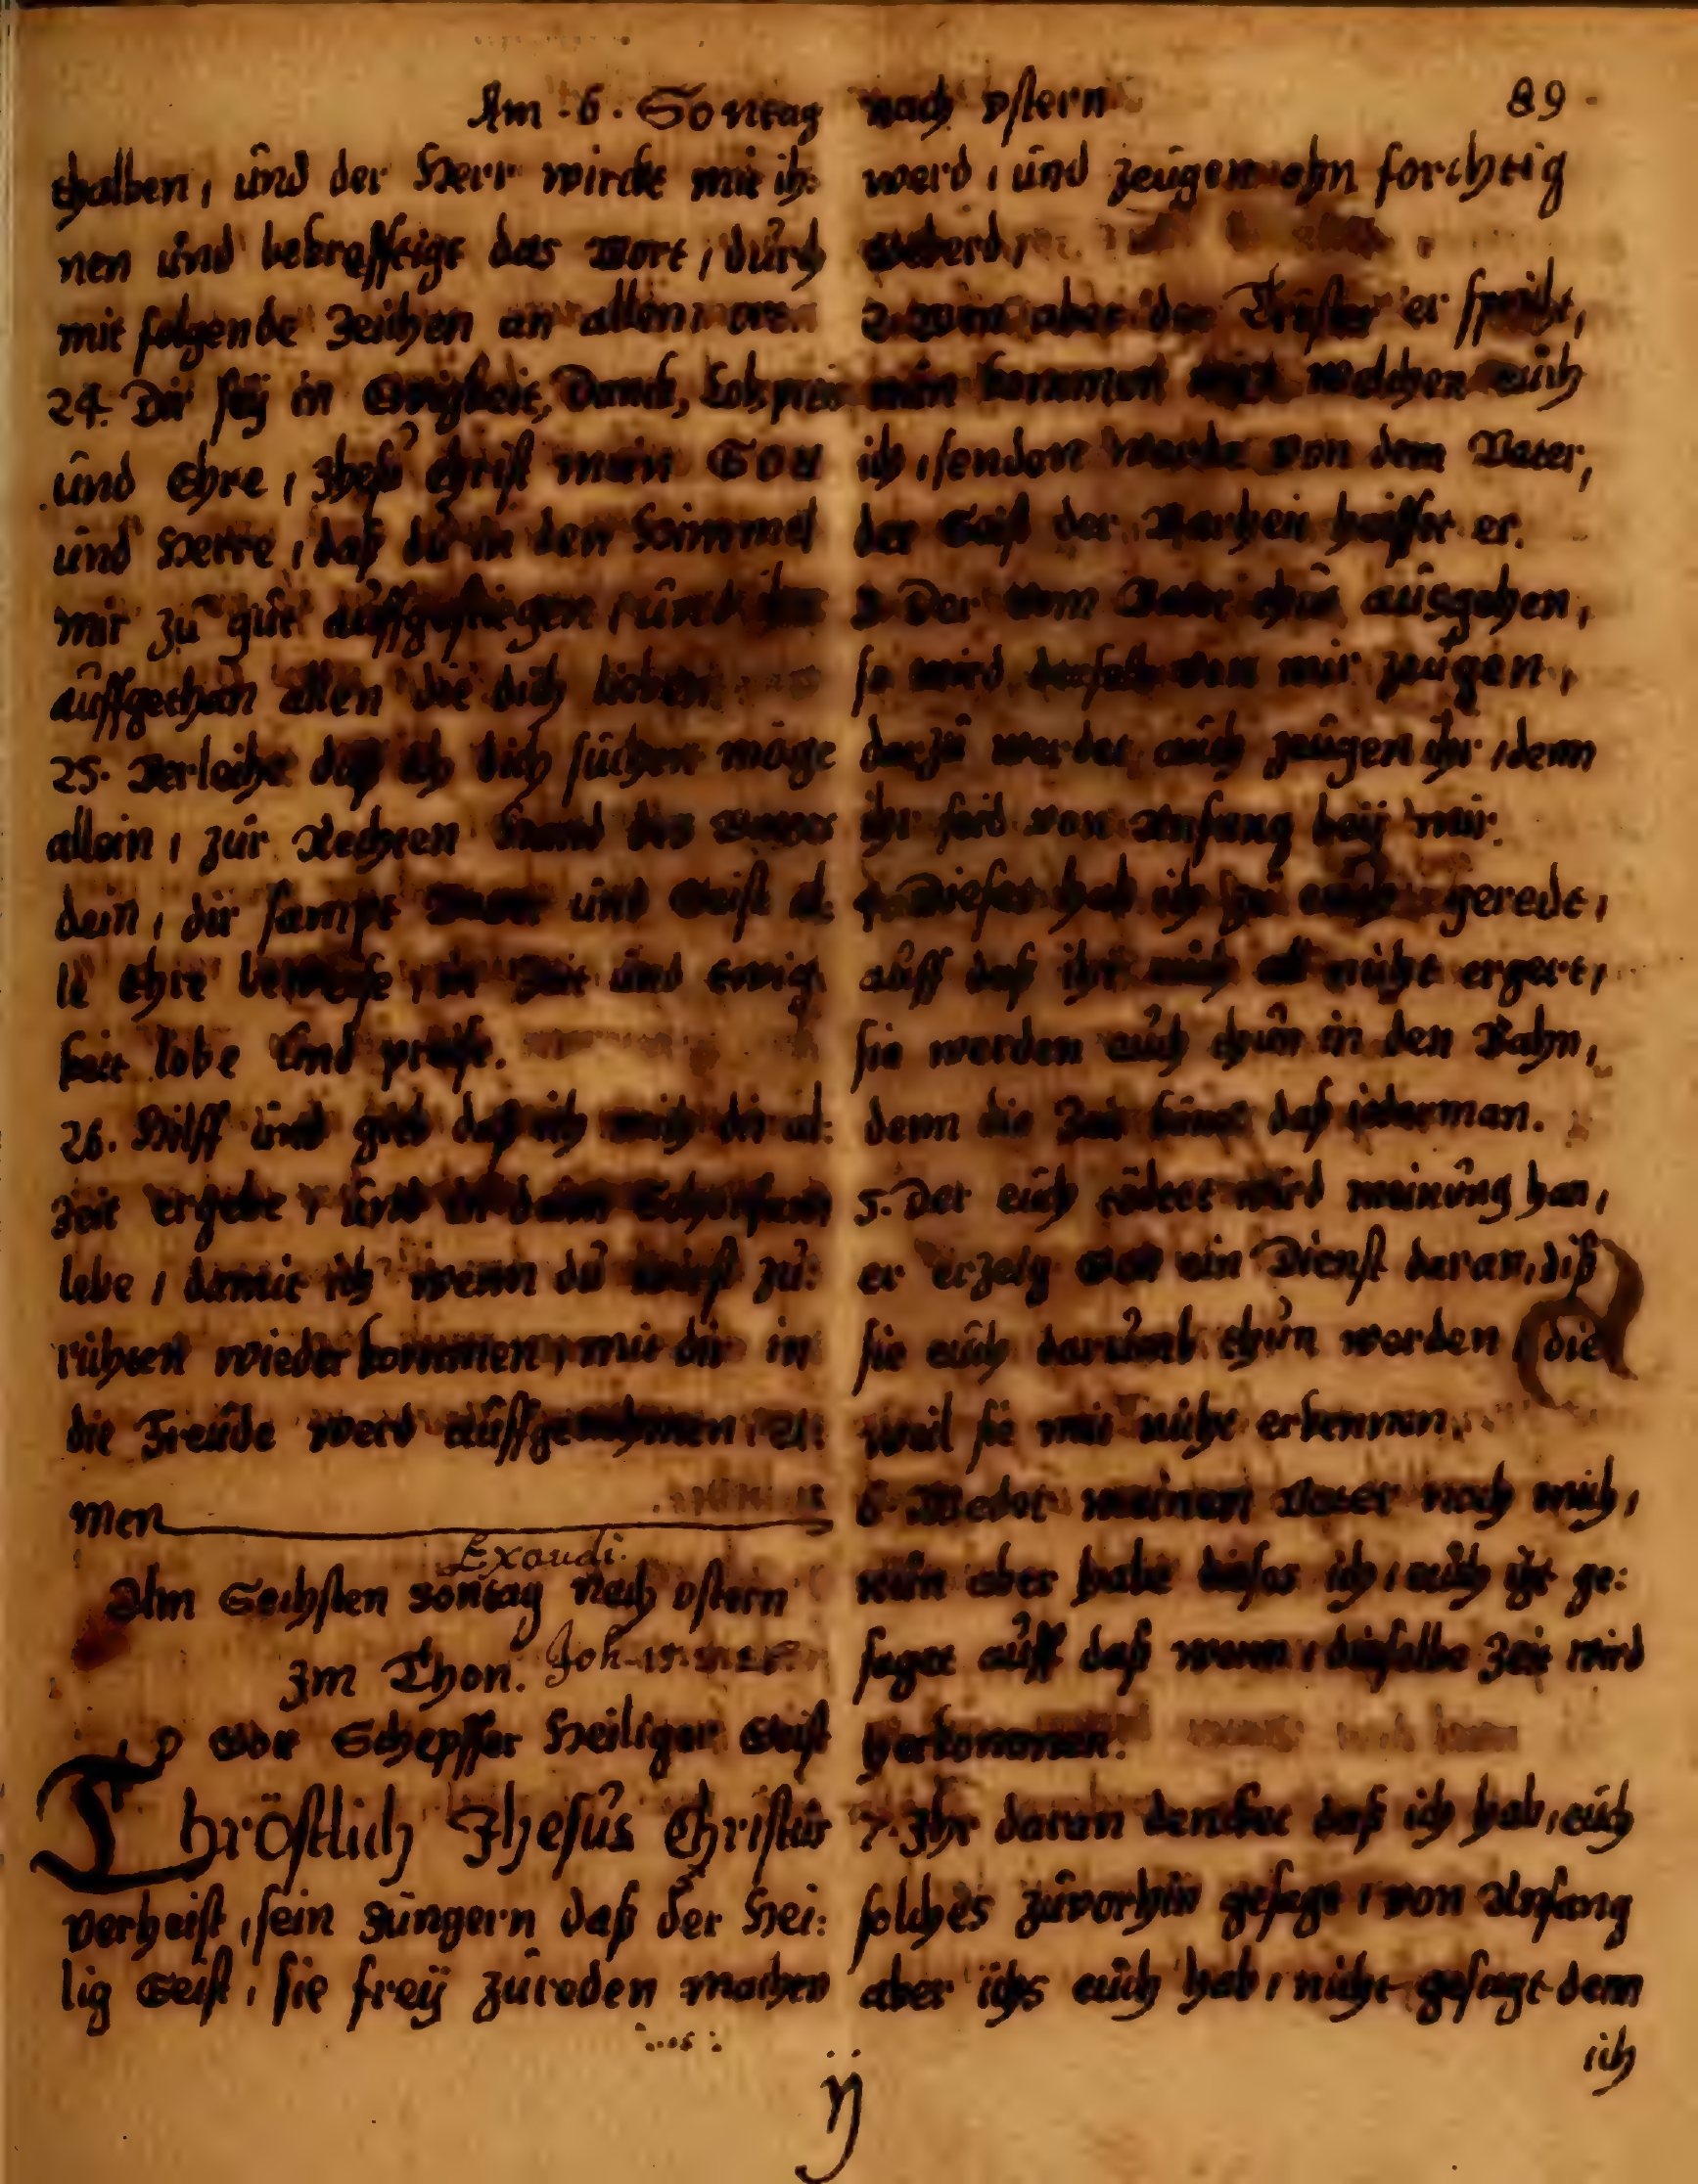 Am . 6 . Sontag nach ostern 89
thalben, und der Herr wirckt mit ih:
nen und bekrefftigt das Wort, durch
mit folgende Zeichen an allem ort.
24. Dir sey in Ewigkeit, Danck, Lob preis
und Ehre, Jhesu Christ mein Gott
und Herre, daß du in den Himmel
mir zu gut auffgestiegen, und ihn
auffgethan allen die dich lieben.
25. Verleihe daß ich dich suchen möge
allein, zur Rechten Hand des Vaters
dein, dir sampt Vater und Geist al:
le Ehre beweise, in Zeit und Ewig
keit lobe und preise.
26. Hilff und gieb daß ich mich dir al:
zeit ergebe, und in dein Gehorsam
lebe, damit ich wenn du wirst zu:
richten wieder kommen, mit dir in
die Freude werd auffgenohmen, A:
men
Exaudi.
Am Sechsten Sontag Nach ostern
Im Thon. Joh. 15.
O Gott Schepffer Heiliger Geist
Thröstlich Jhesus Christus
verheist, sein Jüngern daß der Hei:
lig Geist, sie frey zu reden machen
werd, und zeugen ohn forchtig

2. Wen aber der Tröster er spricht,
nun kommen wird welchen euch
ich, senden werde von dem Vater,
der Geist der Warheit heisset er.
3. Der vom Vater thut ausgehen,
so wird derselb von mir zeugen,
darzu werdet auch zeugen ihr, denn
ihr seid von Anfang bey mir.
4. Dieses hab ich zu euch geredt,
auff daß ihr euch all nicht ergert,
sie werden euch thun in den Bahn,
denn die Zeit kümt daß jederman.
5. Der euch tödtet wird meinung han,
er erzeig Gott ein Dienst daran, diß
sie euch darumb thun werden, die
weil sie mir nicht erkennen.
6. Weder meinen Vater noch mich,
nun aber habe dieses ich, euch itzt ge:
saget auff daß wenn, dieselbe Zeit wird
herkommen.
7. Ihr daran dencket daß ich hab, euch
solches zuvorhin gesagt, von Anfang
aber ichs euch hab, nicht gesagt denn
ich
ÿ